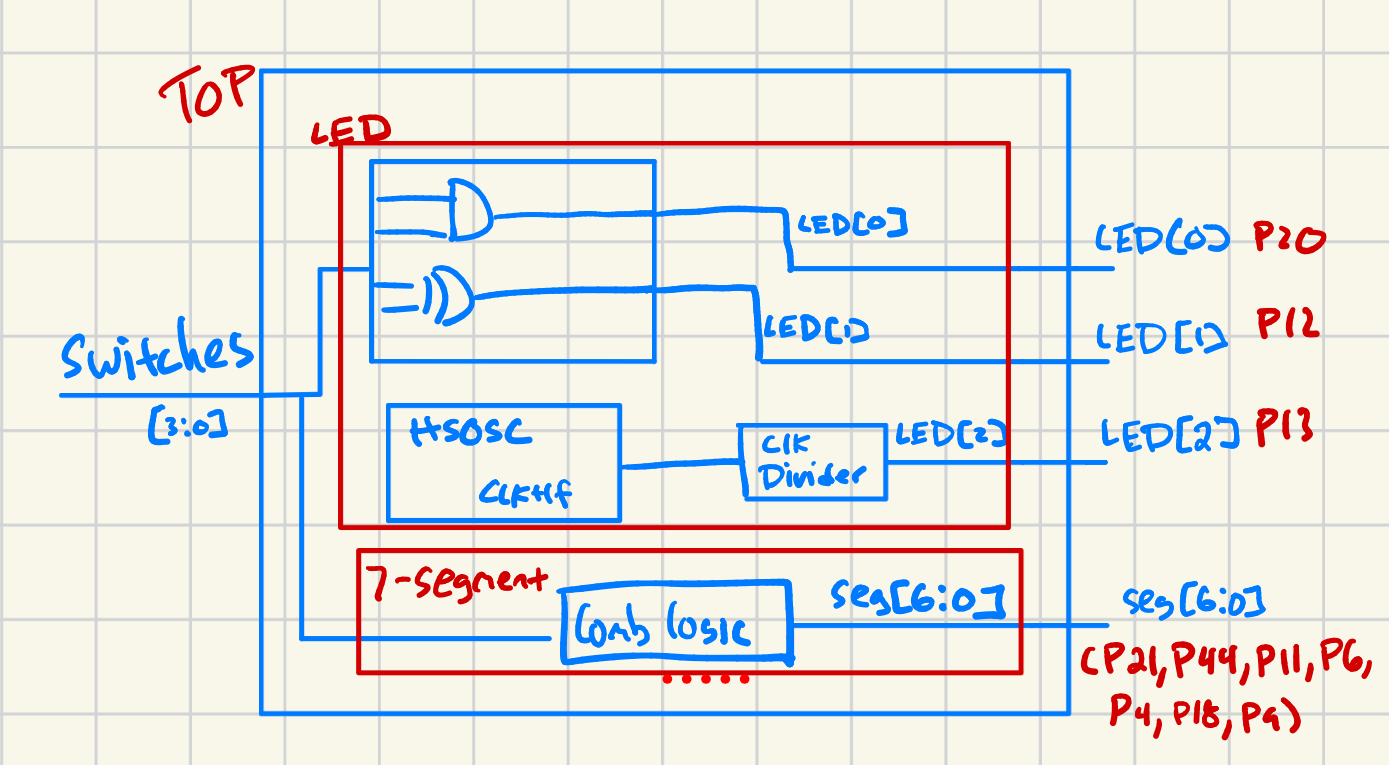 TOP
LED
LED[0]
LED[0] P20
LED[1]
LED[1] P12
Switches
[3:0]
HSOSC
CLKHf
Clk
Divider
LED[2]
LED[2] P13
7-segment
Comb logic
seg[6:0]
seg[6:0]
(P21, P44, P11, P6,
P4, P18, P9)